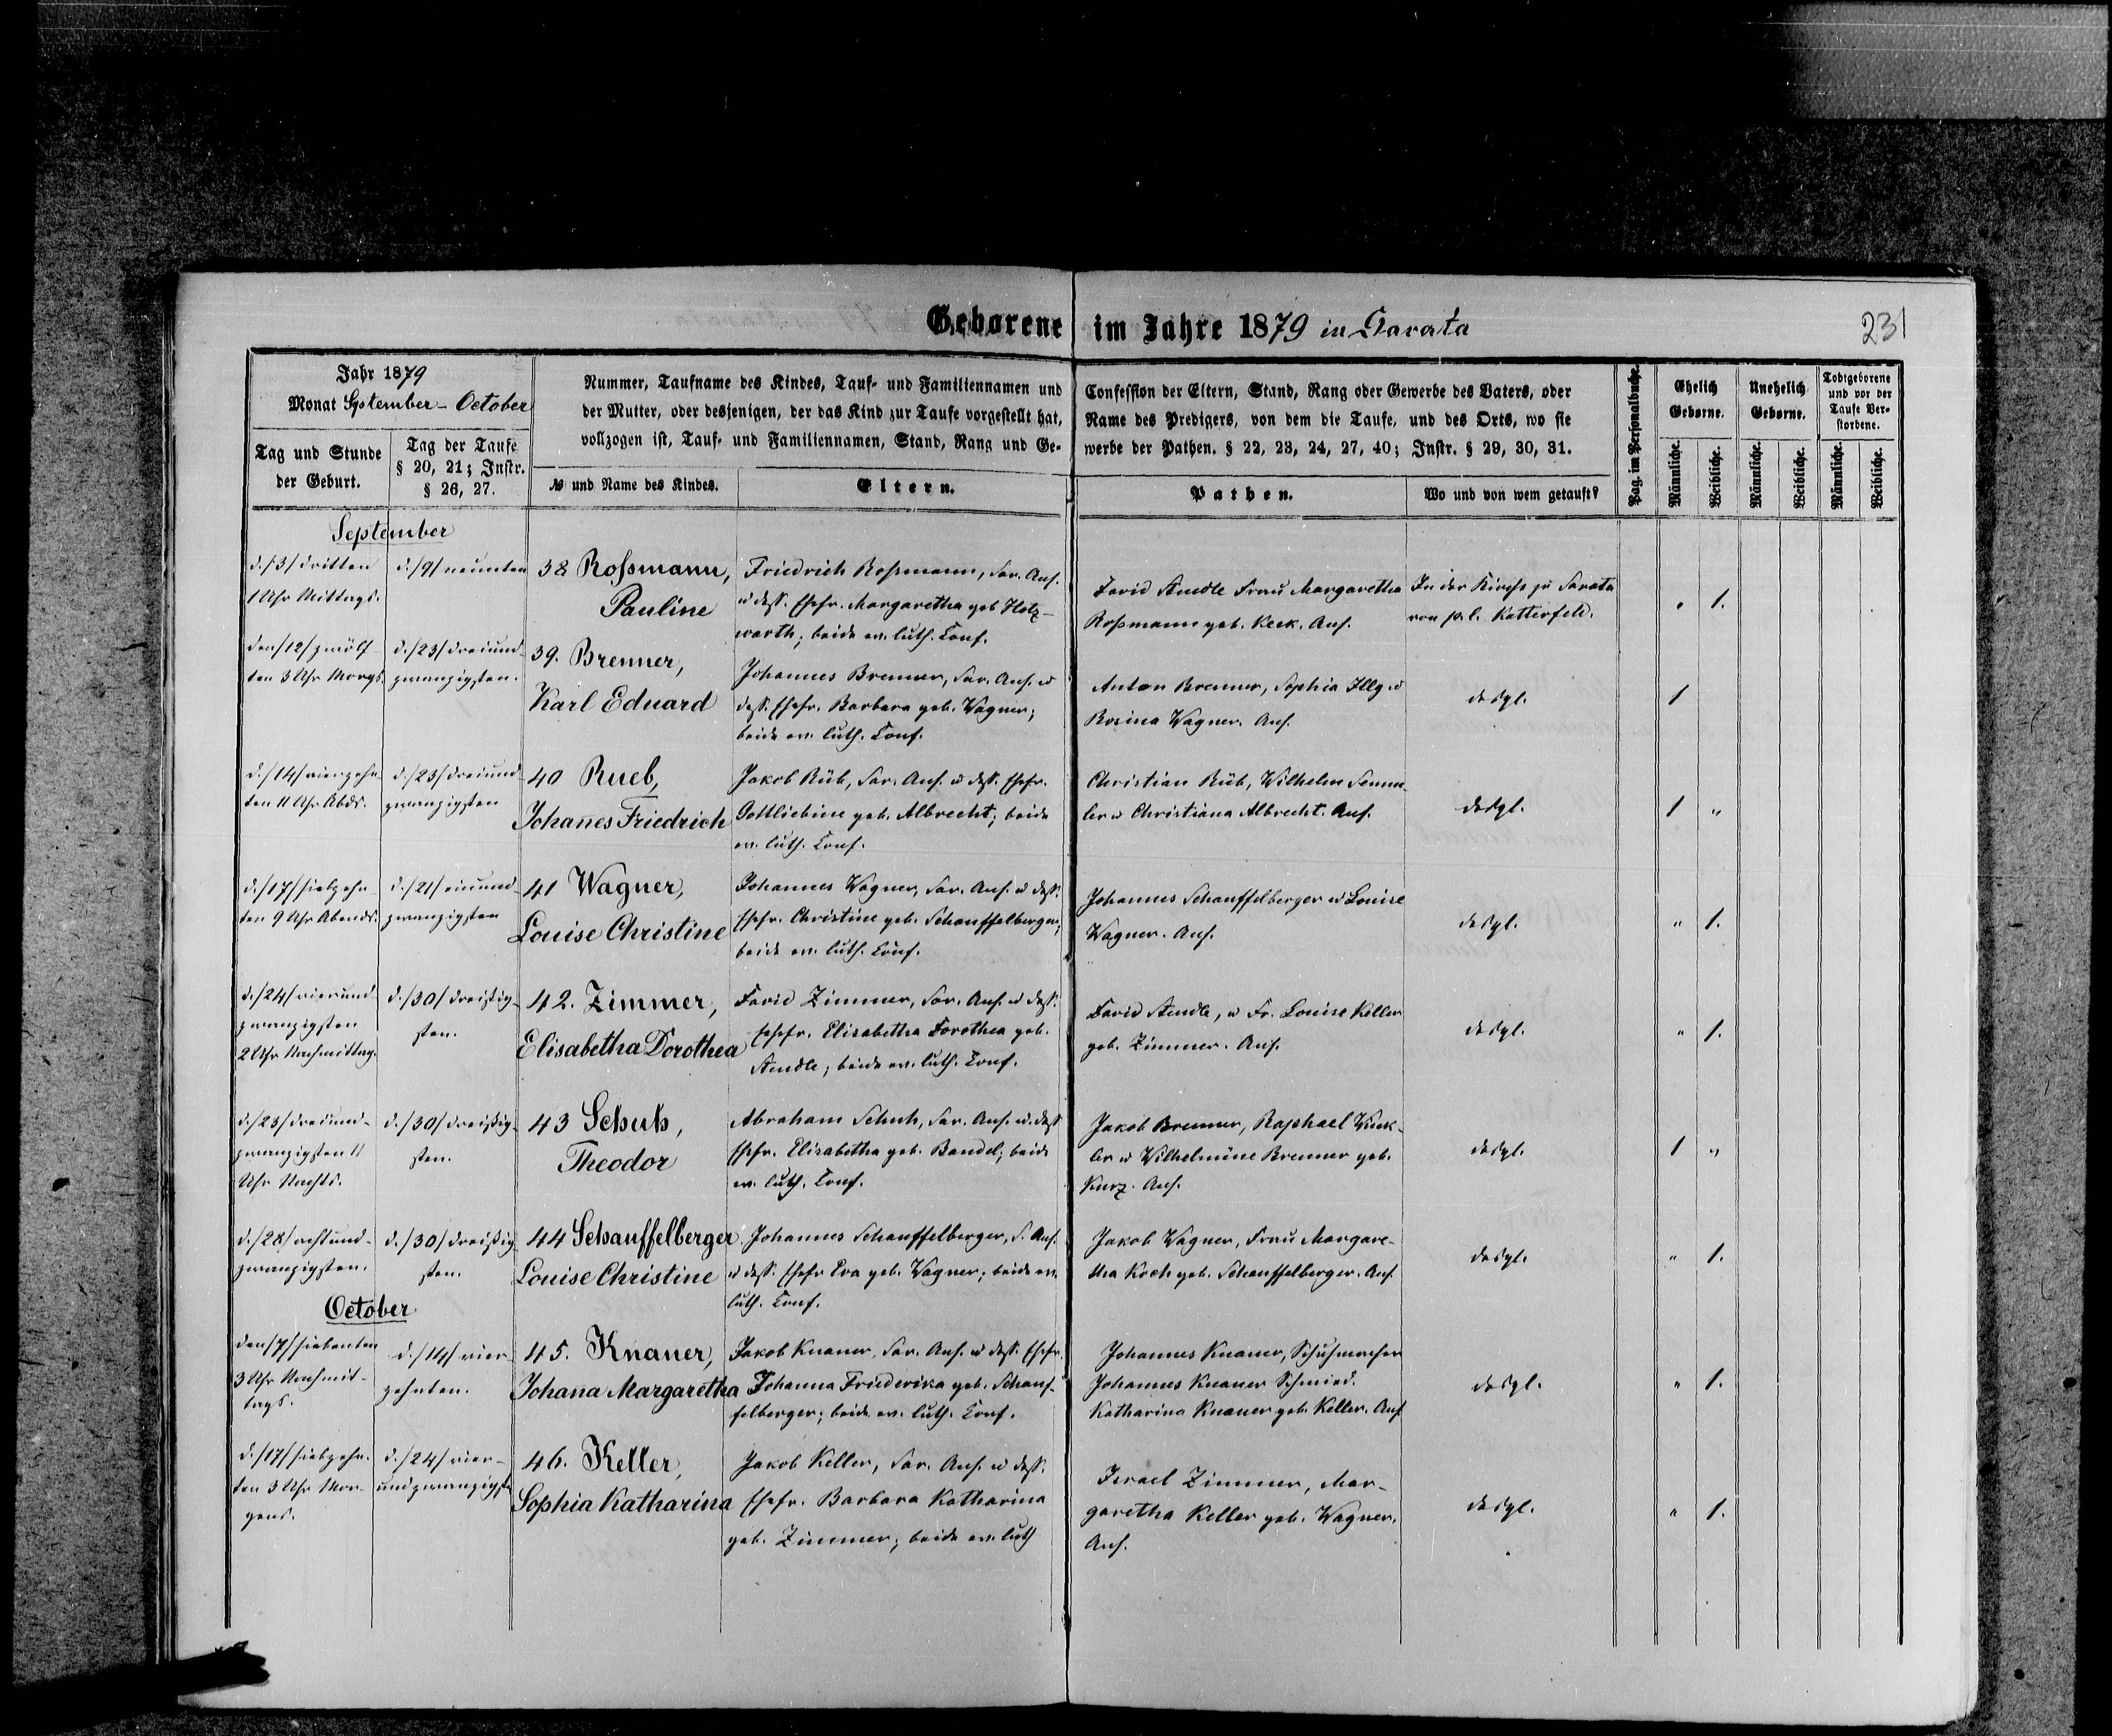 Geborene im Jahre 1879 in Sarata
23
Jahr 1879
Monat September - October
Tag und Stunde
der Geburt.
Tag der Taufe
§ 20, 21; Instr.
§ 26, 27.
Nummer, Taufname des Kindes, Tauf- und Familiennamen und
der Mutter, oder desjenigen, der das Kind zur Taufe vorgestellt hat,
vollzogen ist, Tauf- und Familiennamen, Stand, Rang und Ge-
№ und Name des Kindes.
Eltern.
Confession der Eltern, Stand, Rang oder Gewerbe des Vaters, oder
Name des Predigers, von dem die Taufe, und des Orts, wo sie
werbe der Pathen. § 22, 23, 24, 27, 40; Instr. § 29, 30, 31.
Pathen.
Wo und von wem getauft?
Pag. im Personalbuche.
Ehelich
Geborne.
Unehelich
Geborne.
Todtgeborene
und vor der
Taufe Ver-
storbene.
Männliche.
Weibliche.
Männliche.
Weibliche.
Männliche.
Weibliche.
September
d. /3/ dritten
1 Uhr Mittags.
d. /9/ neunten
38 Roßmann,
Pauline
Friedrich Roßmann, Sar. Ans.
u dess. Ehefr. Margaretha geb Holz-
warth; beide ev. luth. Conf.
David Aendle Frau Margaretha
Roßmann geb. Keck. Ans.
In der Kirche zu Sarata
von p. l. Katterfeld.
" 1.
den /12/ zwölf
ten 3 Uhr Morgs.
d. /23/ dreiund-
zwanzigsten.
39. Brenner,
Karl Eduard
Johannes Brenner, Sar. Ans. u
dess. Ehefr. Barbara geb. Wagner;
beide ev. luth. Conf.
Anton Brenner, Sophia Illg u
Rosina Wagner. Ans.
desgl.
1
d. /14/ vierzehn-
ten 11 Uhr Abds.
d. /23/ dreiund-
zwanzigsten
40 Rueb,
Johanes Friedrich
Jakob Rüb, Sar. Ans. u dess. Ehefr.
Gottliebine geb. Albrecht; beide
ev. luth. Conf.
Christian Rüb, Wilhelm Semm-
ler u Christiana Albrecht. Ans.
desgl.
1 "
d. /17/ siebzehn-
ten 9 Uhr Abends.
d. /21/ einund-
zwanzigsten
41 Wagner,
Louise Christine
Johannes Wagner, Sar. Ans. u dess.
Ehefr. Christine geb. Schauffelberger;
beide ev. luth. Conf.
Johannes Schauffelberger u Louise
Wagner. Ans.
desgl.
" 1.
d. /24/ vierund-
zwanzigsten
2 Uhr Nachmittag.
d. /30/ dreißig-
sten.
42. Zimmer,
Elisabetha Dorothea
David Zimmer, Sar. Ans. u dess.
Ehefr. Elisabetha Dorothea geb.
Aendle; beide ev. luth. Conf.
David Aendle, u Fr. Louise Keller
geb. Zimmer. Ans.
desgl.
" 1.
d. /23/ dreiund-
zwanzigsten 11
Uhr Nachts.
d. /30/ dreißig-
sten.
43 Schuh,
Theodor
Abraham Schuh, Sar. Ans. u. dess
Ehefr. Elisabetha geb. Bandel; beide
ev. luth. Conf.
Jakob Brenner, Raphael Wink-
ler u Wilhelmine Brenner geb.
Kurz. Ans.
desgl.
1 "
d. /28/ achtund-
zwanzigsten.
d. /30/ dreißig-
sten.
44 Schauffelberger
Louise Christine
Johannes Schauffelberger, S. Ans.
u dess. Ehefr Eva geb. Wagner; beide ev.
luth. Conf.
Jakob Wagner, Frau Margare-
tha Koch geb. Schauffelberger. Ans.
desgl.
" 1.
October
den /7/ siebenten
3 Uhr Nachmit-
tags.
d. /14/ vier-
zehnten.
45. Knauer,
Johana Margaretha
Jakob Knauer, Sar. Ans. u dess. Ehefr.
Johanna Friederika geb. Schauf-
felberger; beide ev. luth. Conf.
Johannes Knauer, Schuhmacher
Johannes Knauer Schmied.
Katharina Knauer geb. Keller. Ans
desgl.
" 1.
d. /17/ siebzehn-
ten 3 Uhr Mor-
gens.
d. /24/ vier-
undzwanzigste
46. Keller,
Sophia Katharina
Jakob Keller, Sar. Ans. u dess.
Ehefr. Barbara Katharina
geb. Zimmer; beide ev. luth
Israel Zimmer, Mar-
garetha Keller geb. Wagner.
Ans.
desgl.
" 1.